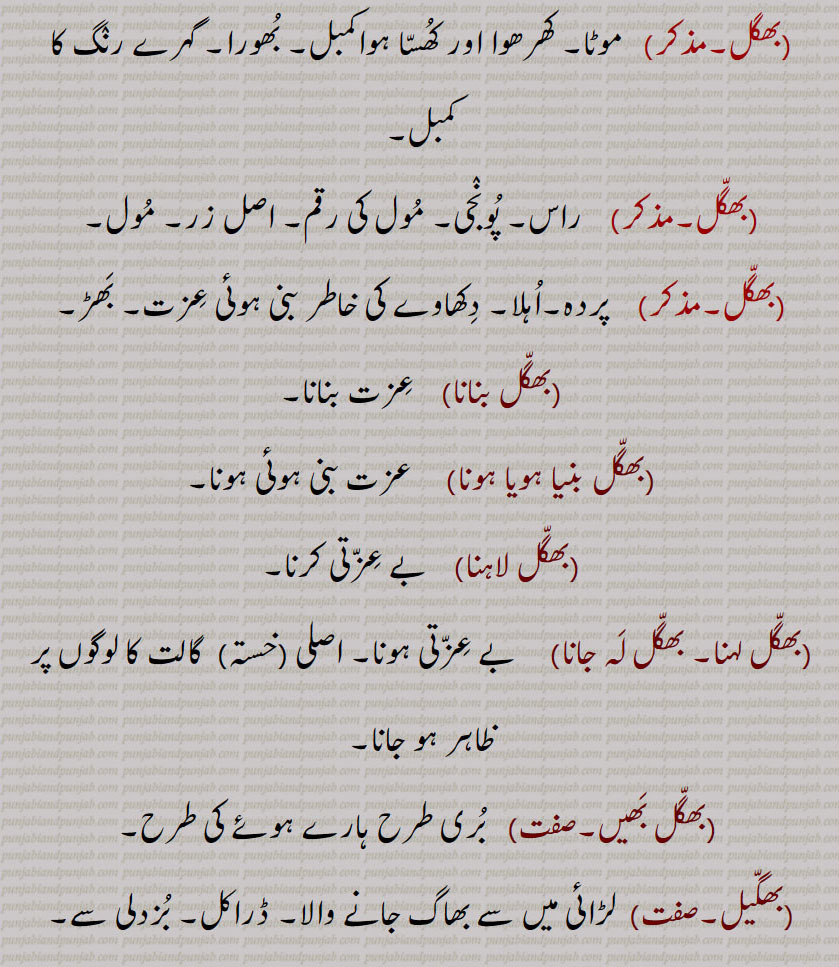 (بھگل۔مذکر) موٹا۔ کھرھوا اور کھُسّا ہواکمبل۔ بُھورا۔ گہرے رنگ کا
کمبل۔
(بھگّل۔مذکر) راس۔ پُونٛجی۔ مُول کی رقم۔ اصل زر۔ مُول۔
(بھگّل۔مذکر) پردہ۔اُہلا۔ دِکھاوے کی خاطر بنی ہوئی عِزت۔ بَھڑ۔
(بھگّل بنانا) عِزت بنانا۔
(بھگّل بنیا ہویا ہونا) عزت بنی ہوئی ہونا۔
(بھگّل لاہنا) بے عِزّتی کرنا۔
(بھگّل لہنا۔ بھگّل لَہ جانا) بے عِزّتی ہونا۔ اصلی (خستہ) گالت کا لوگوں پر
ظاہر ہو جانا۔
(بھگّل بَھیں۔صفت) بُری طرح ہارے ہوئے کی طرح۔
(بھگّیل۔صفت) لڑائی میں سے بھاگ جانے والا۔ ڈراکل۔ بُزدلی سے۔